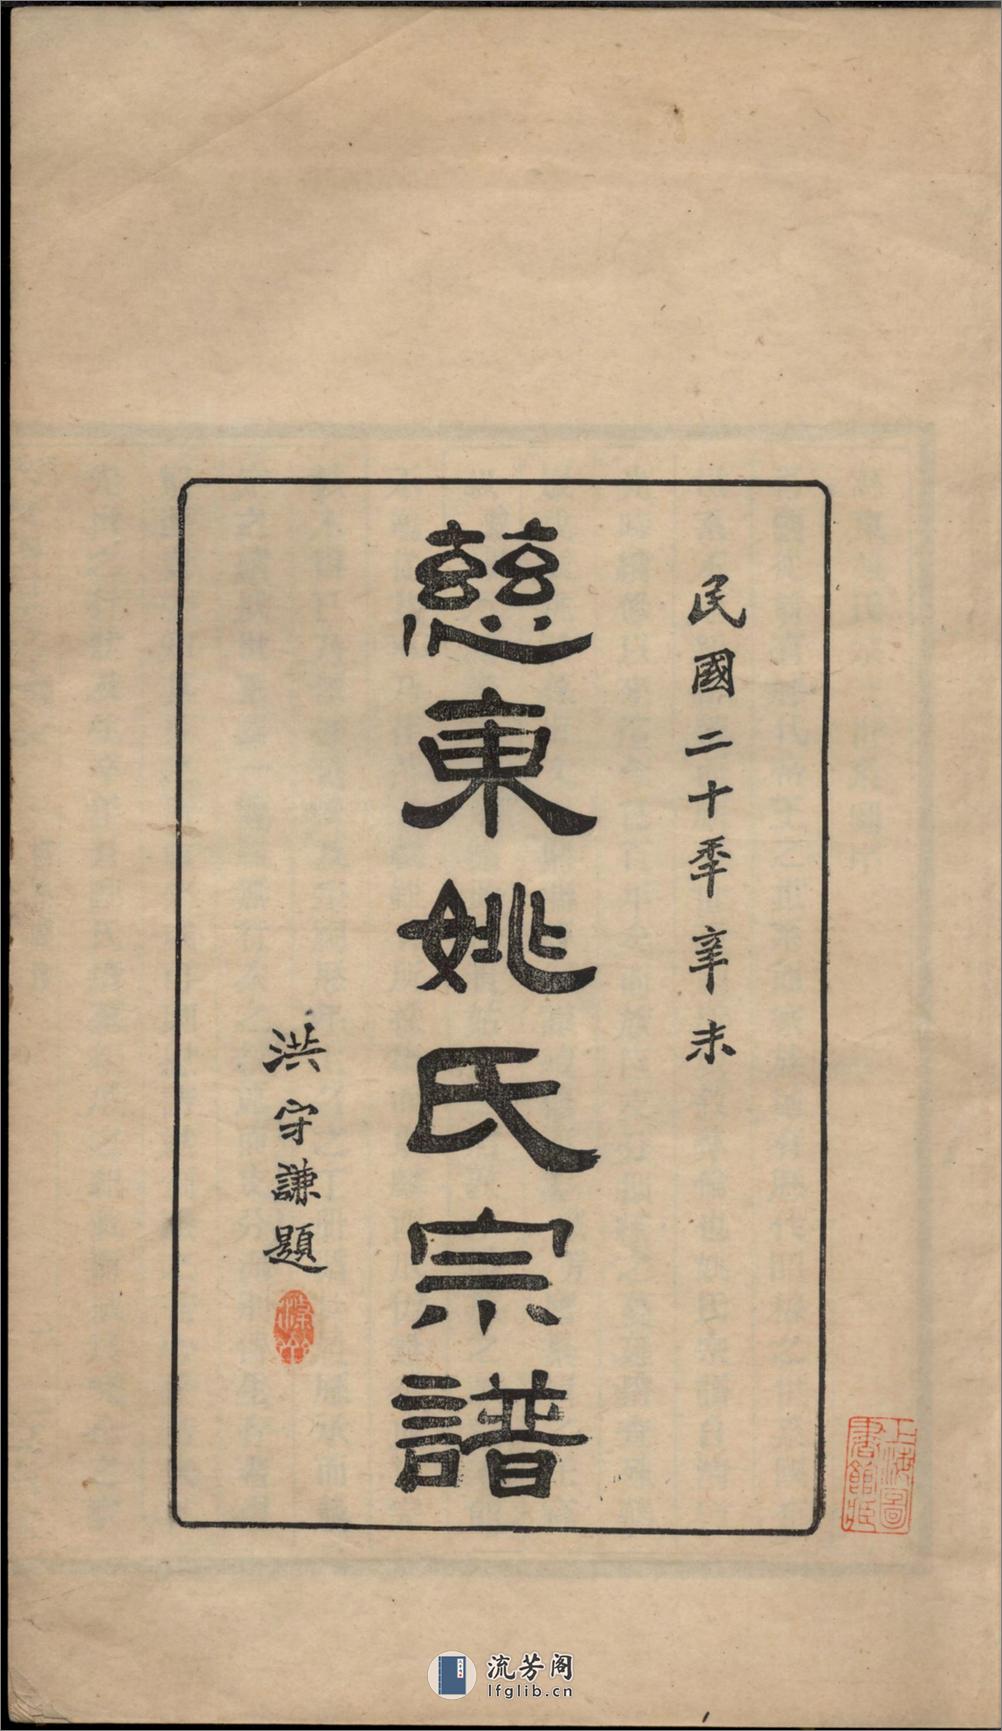 民國二十季辛未
慈東姚氏宗譜
洪守謙題
上海圖
書館藏
流芳阁
lfglib.cn